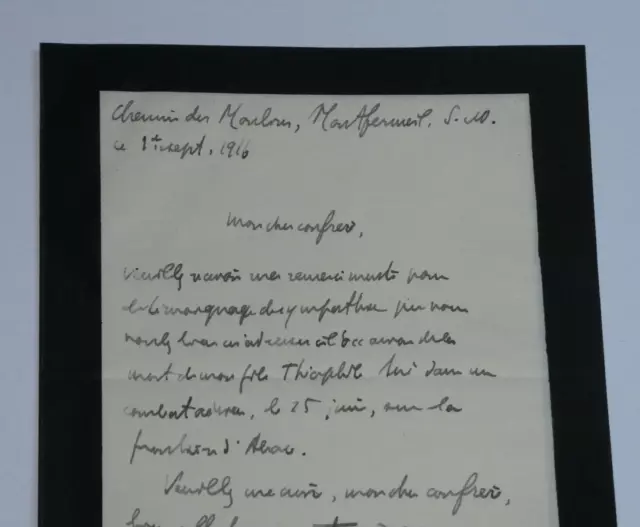 Chemin des Moulins, Montfermeil. S.-et-O.
ce 1er sept. 1916
Mon cher confrère,
Veuillez recevoir mes remerciments pour
le témoignage de sympathie que vous
voulez bien m'adresser à l'occasion de la
mort de mon fils Théophile tué dans un
combat aérien, le 25 juin, sur la
frontière d'Alsace.
Veuillez me croire, mon cher confrère,